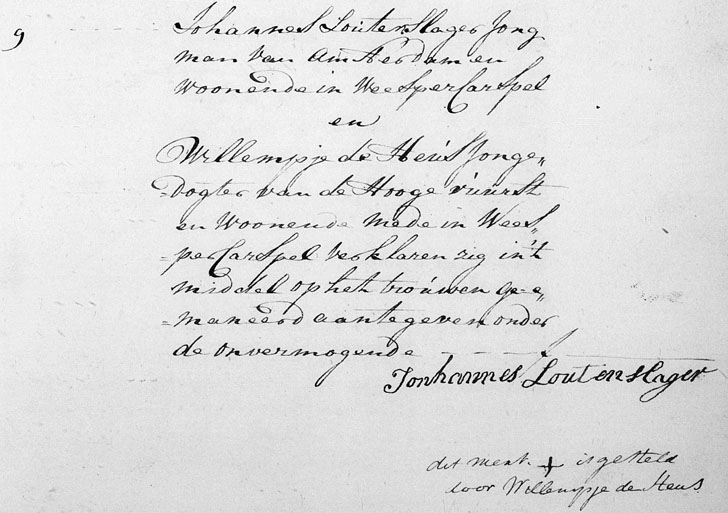 9
Johannes Louterslager Jong
man van Amsterdam en
woonende in WeesperCarspel
en
Willempje de Heus Jonge„
=dogter van de Hooge vuurst
en woonende mede in Wees„
=perCarspel verklaren zig in't
middel op het trouwen ge=e„
=maneerd aantegeven onder
de onvermogende
Jonhannes Loutenslager
dit merk + is gesteld
door Willempje de Heus